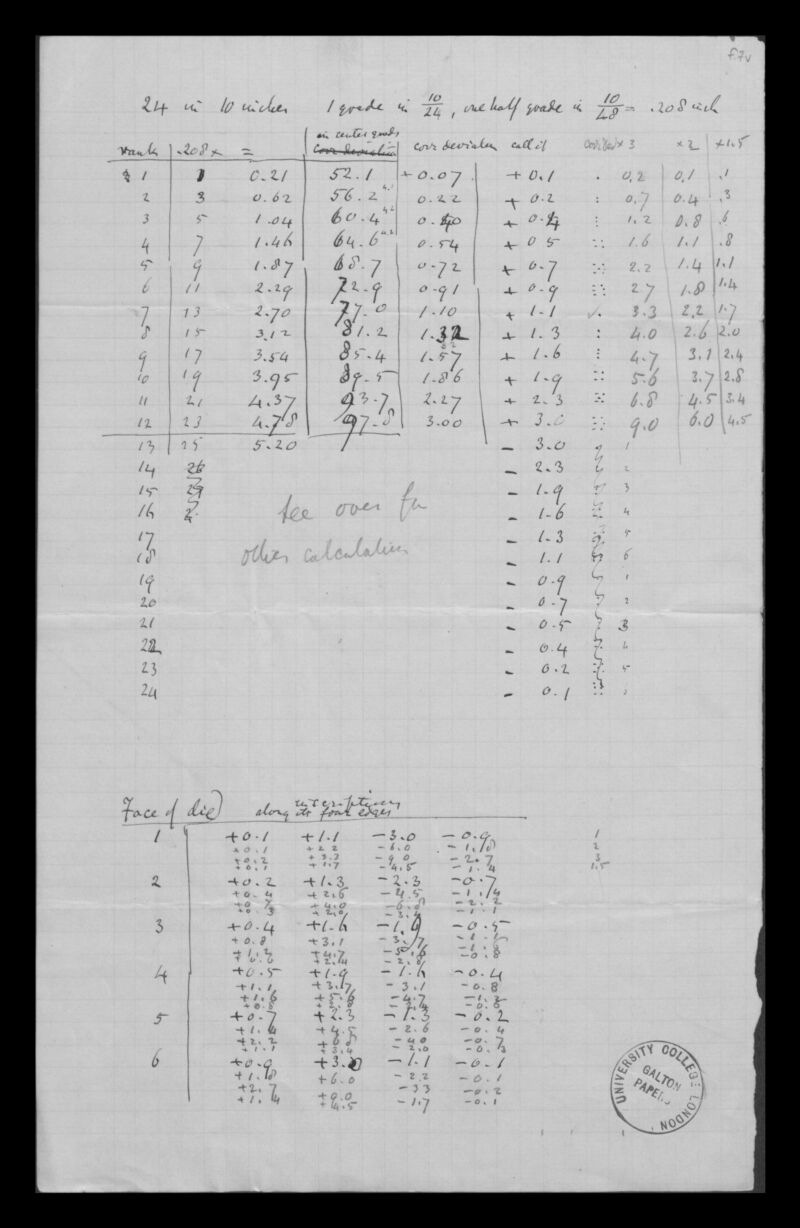 f.7v
24 in 10 inches 1 grade in 10/24, one half grade in 10/48 = .208 inch
in center grads
ranks .208 x = corr deviation corr deviation call it x 3 x 2 x 1.5
1 1 0.21 52.1 +0.07 +0.1 0.2 0.1 .1
2 3 0.62 56.2 0.22 +0.2 0.7 0.4 .3
3 5 1.04 60.4 0.40 +0.4 1.2 0.8 .6
4 7 1.46 64.6 0.54 +0.5 1.6 1.1 .8
5 9 1.87 68.7 0.72 +0.7 2.2 1.4 1.1
6 11 2.29 72.9 0.91 +0.9 2.7 1.8 1.4
7 13 2.70 77.0 1.10 +1.1 3.3 2.2 1.7
8 15 3.12 81.2 1.32 +1.3 4.0 2.6 2.0
9 17 3.54 85.4 1.57 +1.6 4.7 3.1 2.4
10 19 3.95 89.5 1.86 +1.9 5.6 3.7 2.8
11 21 4.37 93.7 2.27 +2.3 6.8 4.5 3.4
12 23 4.78 97.8 3.00 +3.0 9.0 6.0 4.5
13 25 5.20 - 3.0 1
14 - 2.3 2
15 - 1.9 3
16 - 1.6 4
see over for
17 - 1.3 5
other calculations
18 - 1.1 6
19 - 0.9 1
20 - 0.7 2
21 - 0.5 3
22 - 0.4 4
23 - 0.2 5
24 - 0.1
Face of die inscriptions along its four edges
1 +0.1 +1.1 -3.0 -0.9 1
+0.1 +2.2 -6.0 -1.8 2
+0.2 +3.3 -9.0 -2.7 3
+0.1 +1.7 -4.5 -1.4 1.5
2 +0.2 +1.3 -2.3 -0.7
+0.4 +2.6 -4.5 -1.4
+0.7 +4.0 -6.8 -2.2
+0.3 +2.0 -3.4 -1.1
3 +0.4 +1.6 -1.9 -0.5
+0.8 +3.1 -3.7 -1.1
+1.2 +4.7 -5.6 -1.8
+0.6 +2.4 -2.8 -0.8
4 +0.5 +1.9 -1.6 -0.4
+1.1 +3.7 -3.1 -0.8
+1.6 +5.6 -4.7 -1.2
+0.8 +2.8 -2.4 -0.6
5 +0.7 +2.3 -1.3 -0.2
+1.4 +4.5 -2.6 -0.4
+2.2 +6.8 -4.0 -0.7
+1.1 +3.4 -2.0 -0.3
6 +0.9 +3.0 -1.1 -0.1
+1.8 +6.0 -2.2 -0.1
+2.7 -3.3 -0.2
+1.4 +4.5 -1.7 -0.1
UNIVERSITY COLLEGE LONDON
GALTON
PAPERS